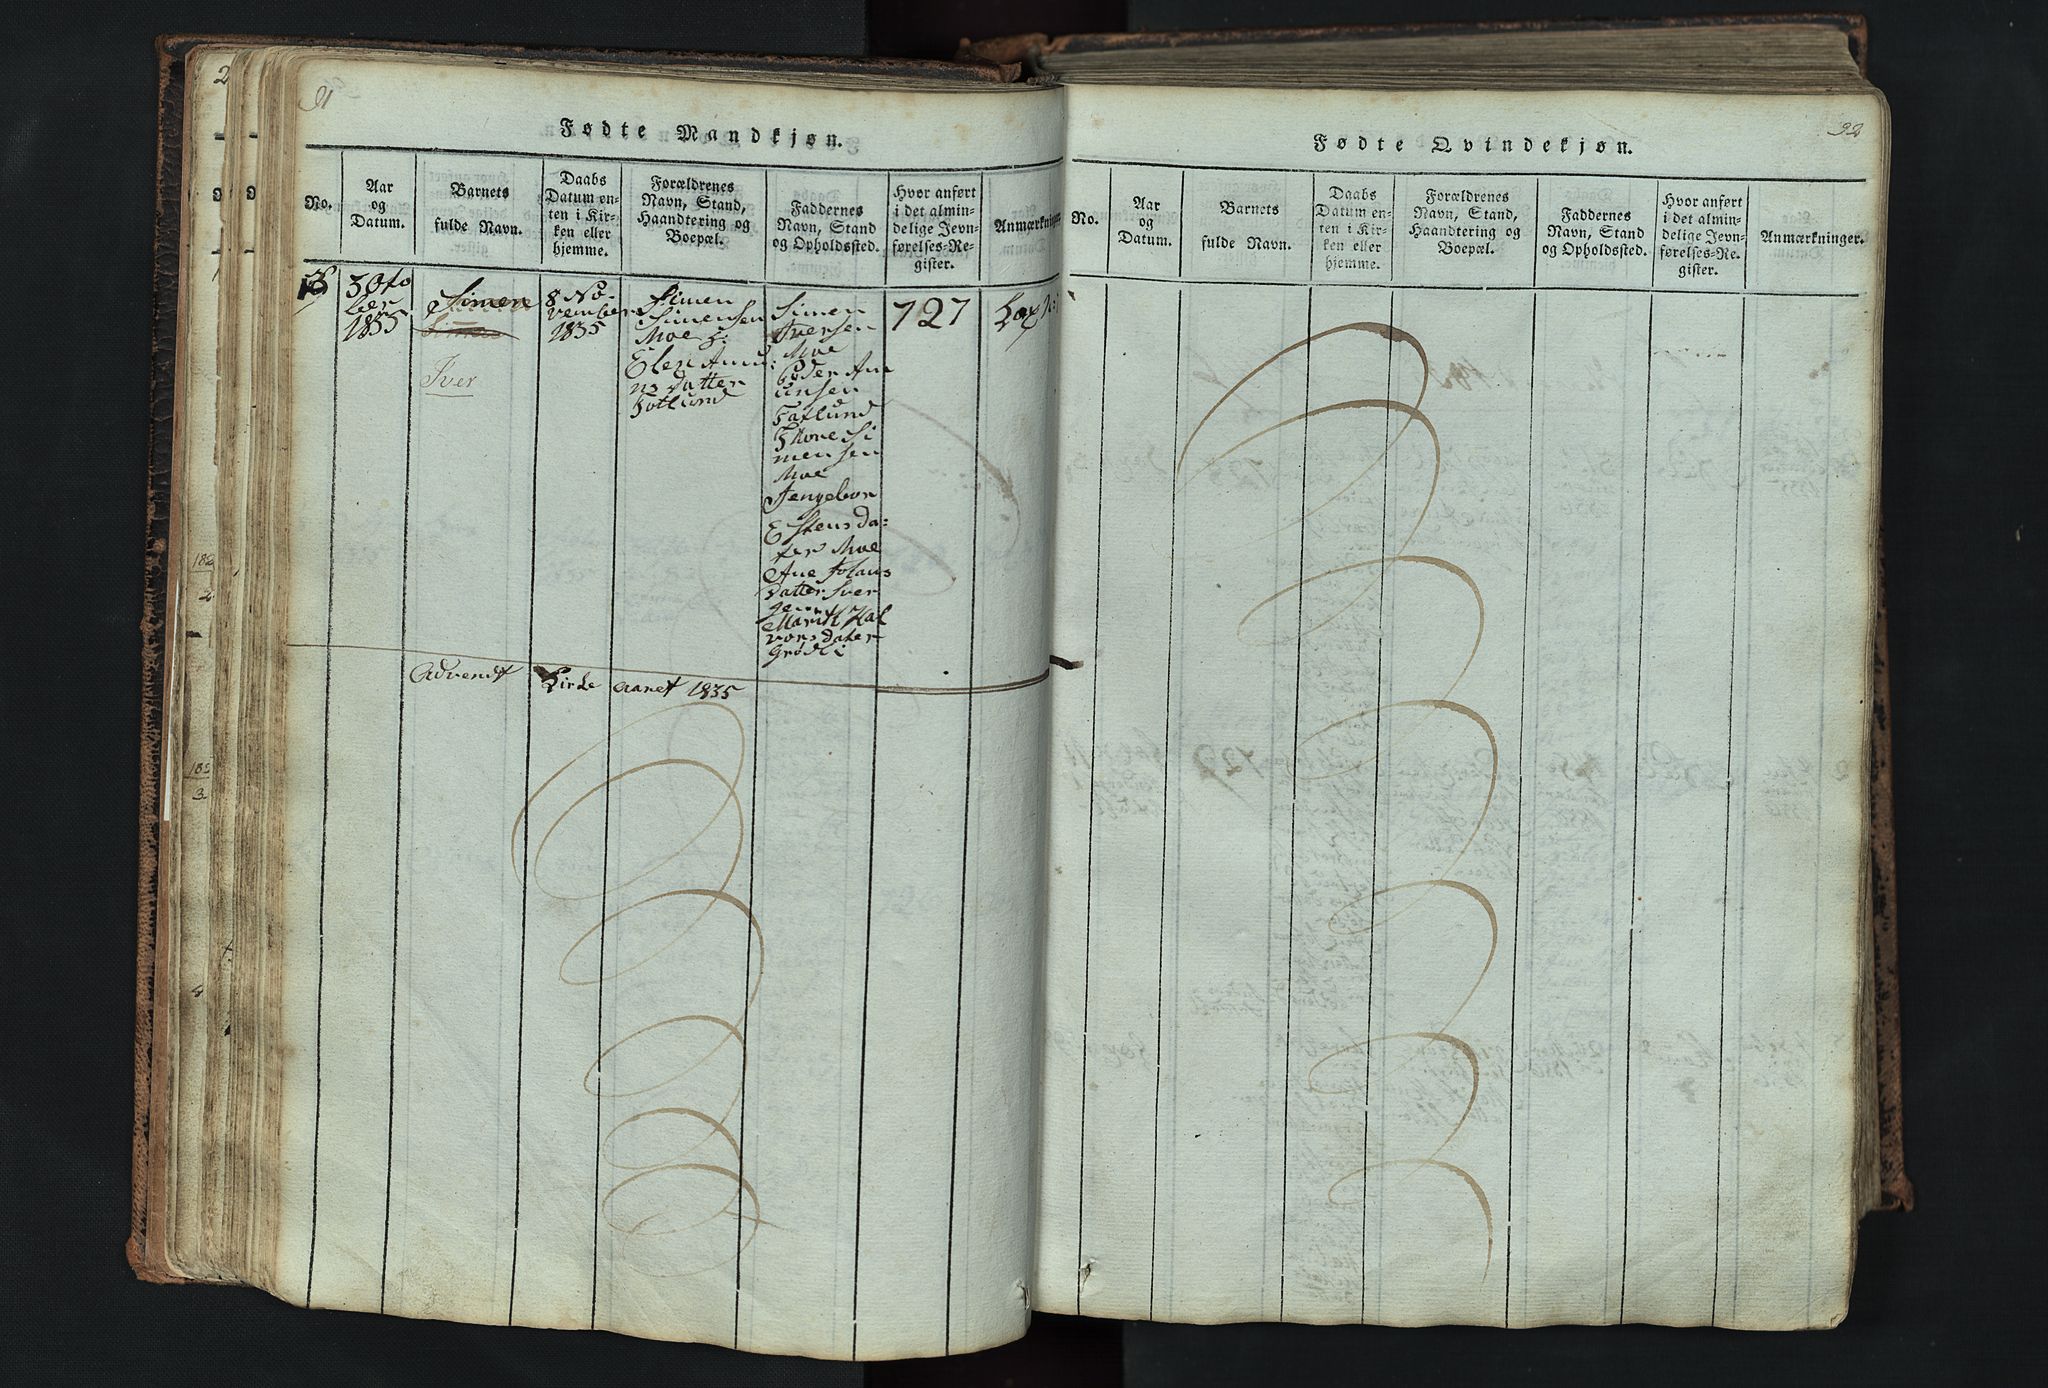 91
Fødte Mandkjøn.
No.
Aar
og
Datum.
Barnets
fulde Navn.
Daabs
Datum en-
ten i Kir-
ken eller
hjemme.
Forældrenes
Navn, Stand,
Haandtering og
Boepæl.
Faddernes
Navn, Stand
og Opholdssted.
Hvor anført
i det almin-
delige Jevn-
førelses-Re-
gister.
Anmærkninger.
3 Octo
ber
1835
Simen
Simen
Iver
8 No-
vember
1835
Simen
Simensen
Moe
Elen Amu
ns datter
Fotlund
Simen
Iversen
Moe
Peder Am
unsen
Fotlund
Thore Si
mensen
Moe
Jengebor
Estensda-
ter Moe
Ane Johans
datter
Marith Hal
vorsdater
Grødli
727
Advendt Kirke aaret 1835
92
Fødte Qvindekjøn.
No.
Aar
og
Datum.
Barnets
fulde Navn.
Daabs
Datum en-
ten i Kir-
ken eller
hjemme.
Forældrenes
Navn, Stand,
Haandtering og
Boepæl.
Faddernes
Navn, Stand
og Opholdssted.
Hvor anført
i det almin-
delige Jevn-
førelses-Re-
gister.
Anmærkninger.